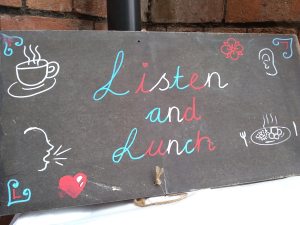 Listen
and
Lunch